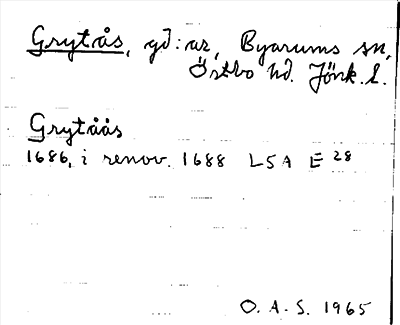 Grytås, gd:ar, Byarums sn,
Östbo hd. Jönk. l.
Grytåås
1686, i renov. 1688 LSA E 28
O. A. S. 1965